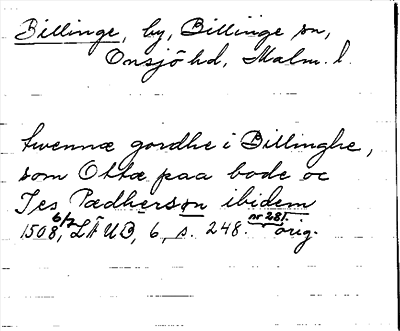 Billinge, by, Billinge sn,
Onsjö hd, Malm. l.
twennæ gordhe i Billinghe,
som Ottæ paa bode oc
Jes Pædherson ibidem
1508 6/2, LÄUB, 6, s. 248. nr 281. orig.